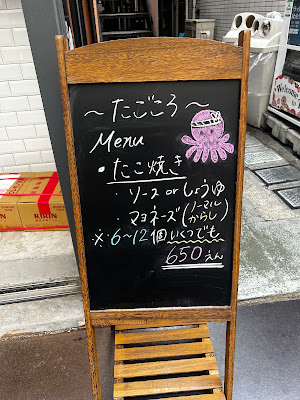 ～たこごころ～
Menu
・たこ焼き
・ソース or しょうゆ
・マヨネーズ(ノーマル からし)
※・6～12個いくつでも
650えん
KIRIN
KIRIN
Welcome